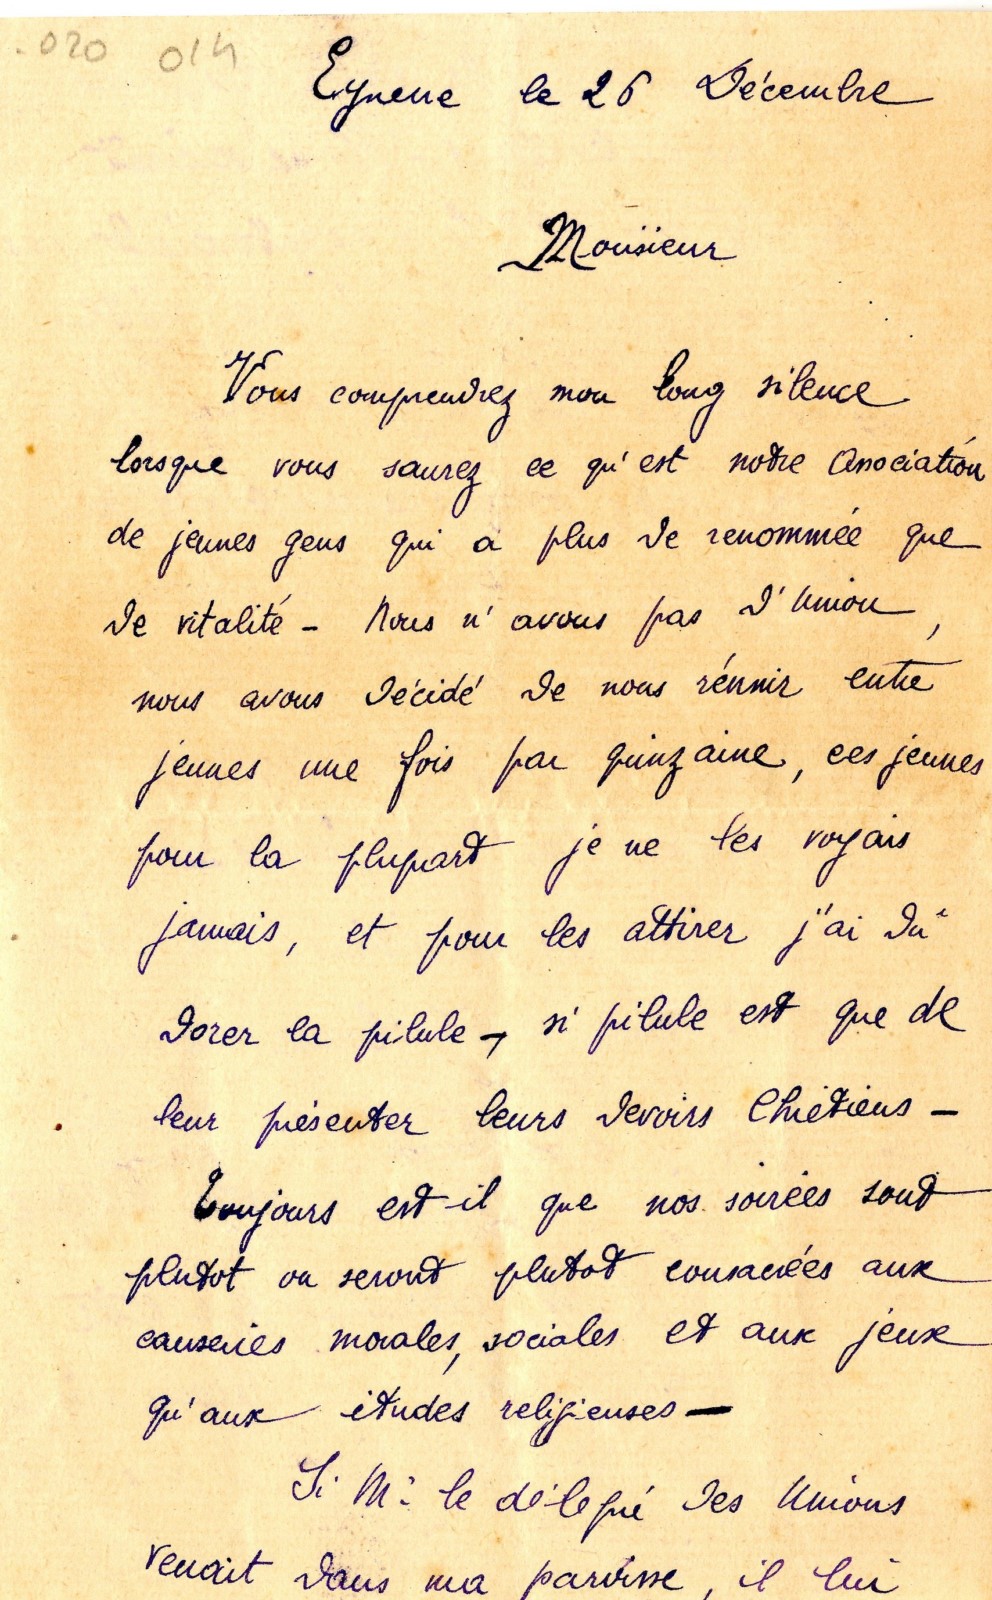 020 014
Eynesse le 26 Décembre
Monsieur
Vous comprendrez mon long silence
lorsque vous saurez ce qu'est notre Association
de jeunes gens qui a plus de renommée que
de vitalité - Nous n'avons pas d'Union,
nous avons décidé de nous réunir entre
jeunes une fois par quinzaine, ces jeunes
pour la plupart je ne les voyais
jamais, et pour les attirer j'ai dû
dorer la pilule -, si pilule est que de
leur présenter leurs devoirs Chrétiens -
Toujours est-il que nos soirées sont
plutot ou seront plutot consacrées aux
causeries morales, sociales et aux jeux
qu'aux études religieuses -
Si Mr le délégué des Unions
venait dans ma paroisse, il lui